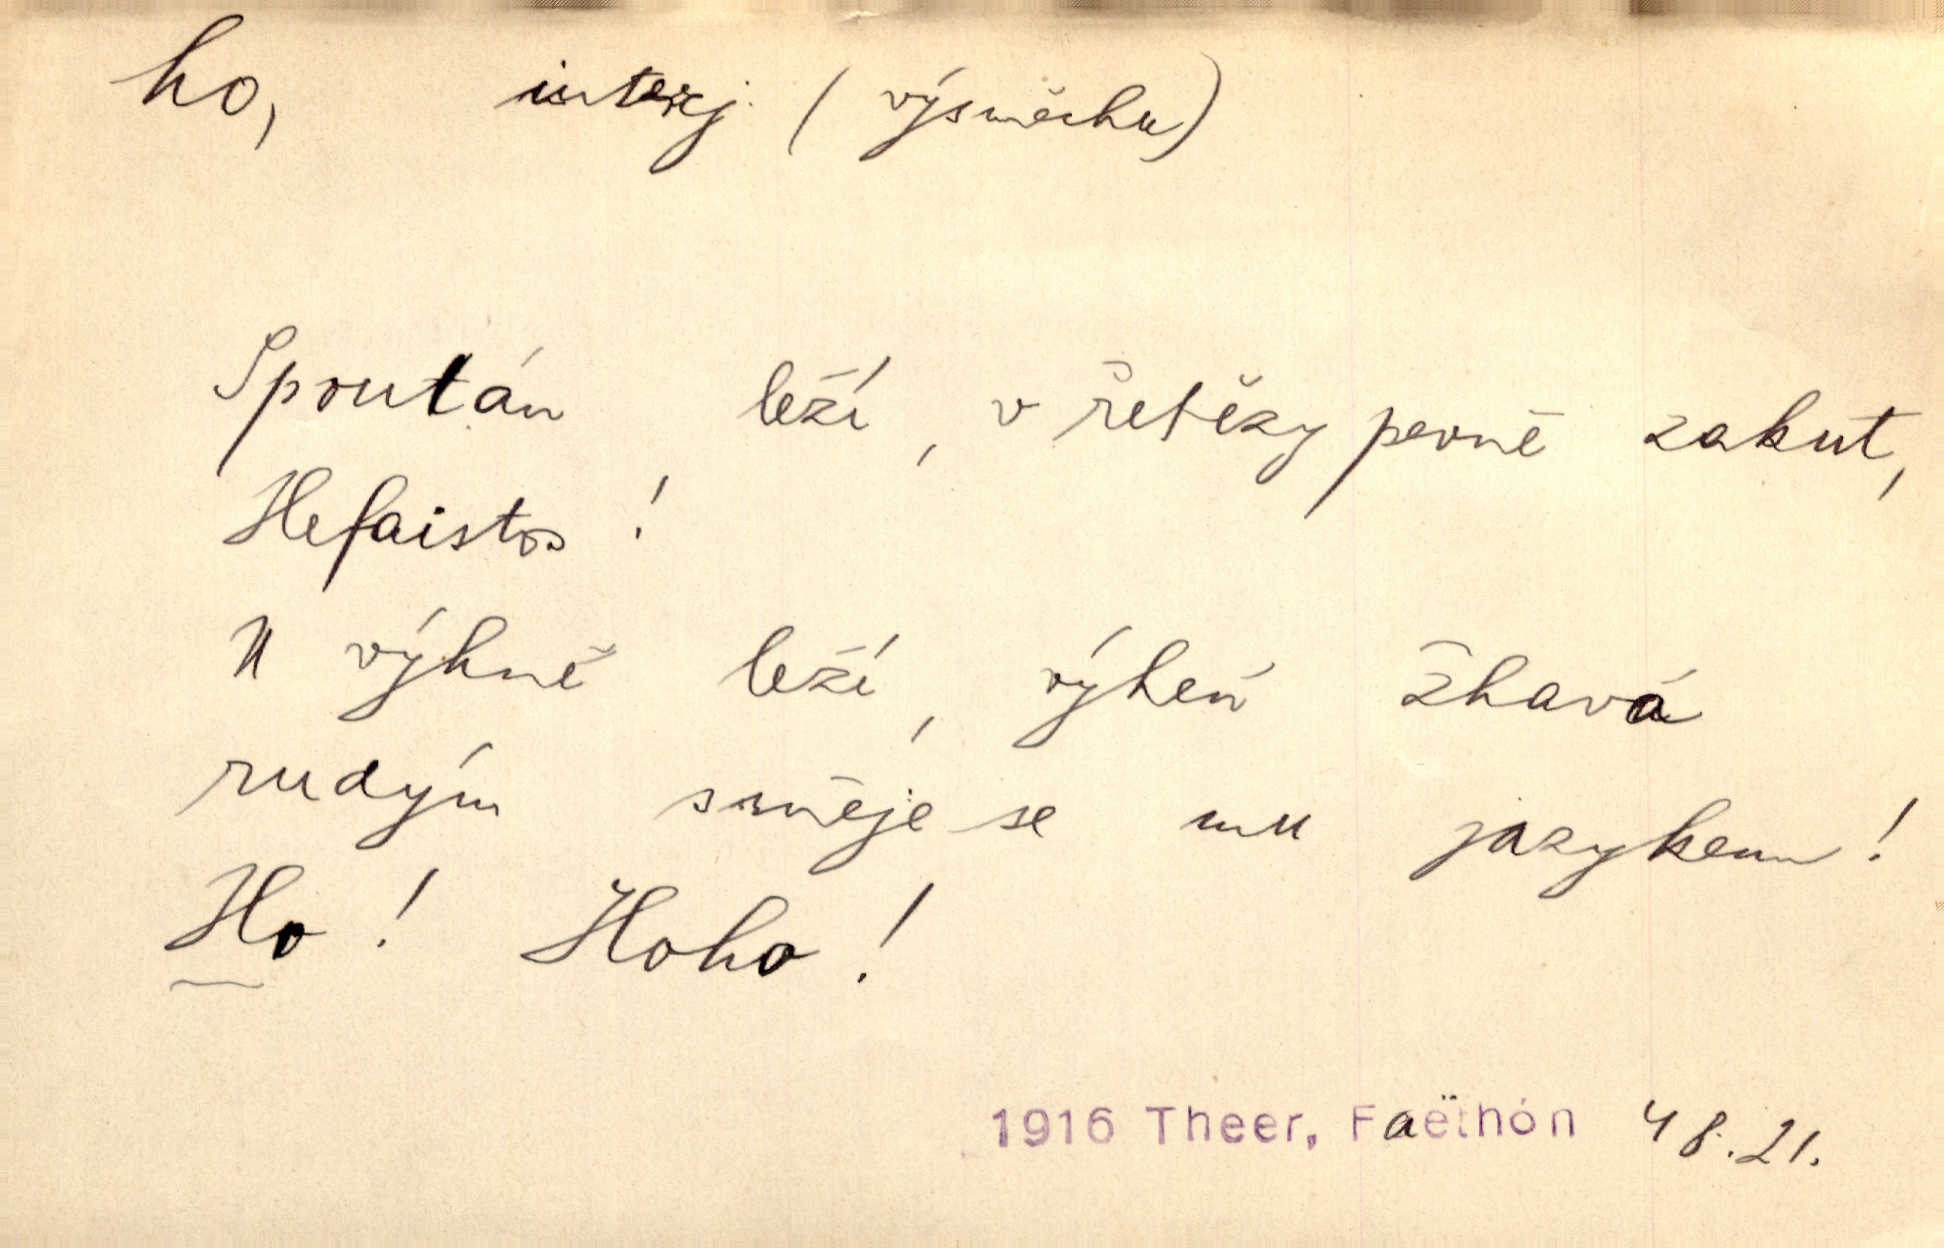 ho, interj. (výsměchu)
Spoután leží, v řetězy pevně zakut,
Hefaistos!
U výhně leží, výheň žhavá
rudým směje se mu jazykem!
Ho! Hoho!
1916 Theer, Faëthón 48.21.